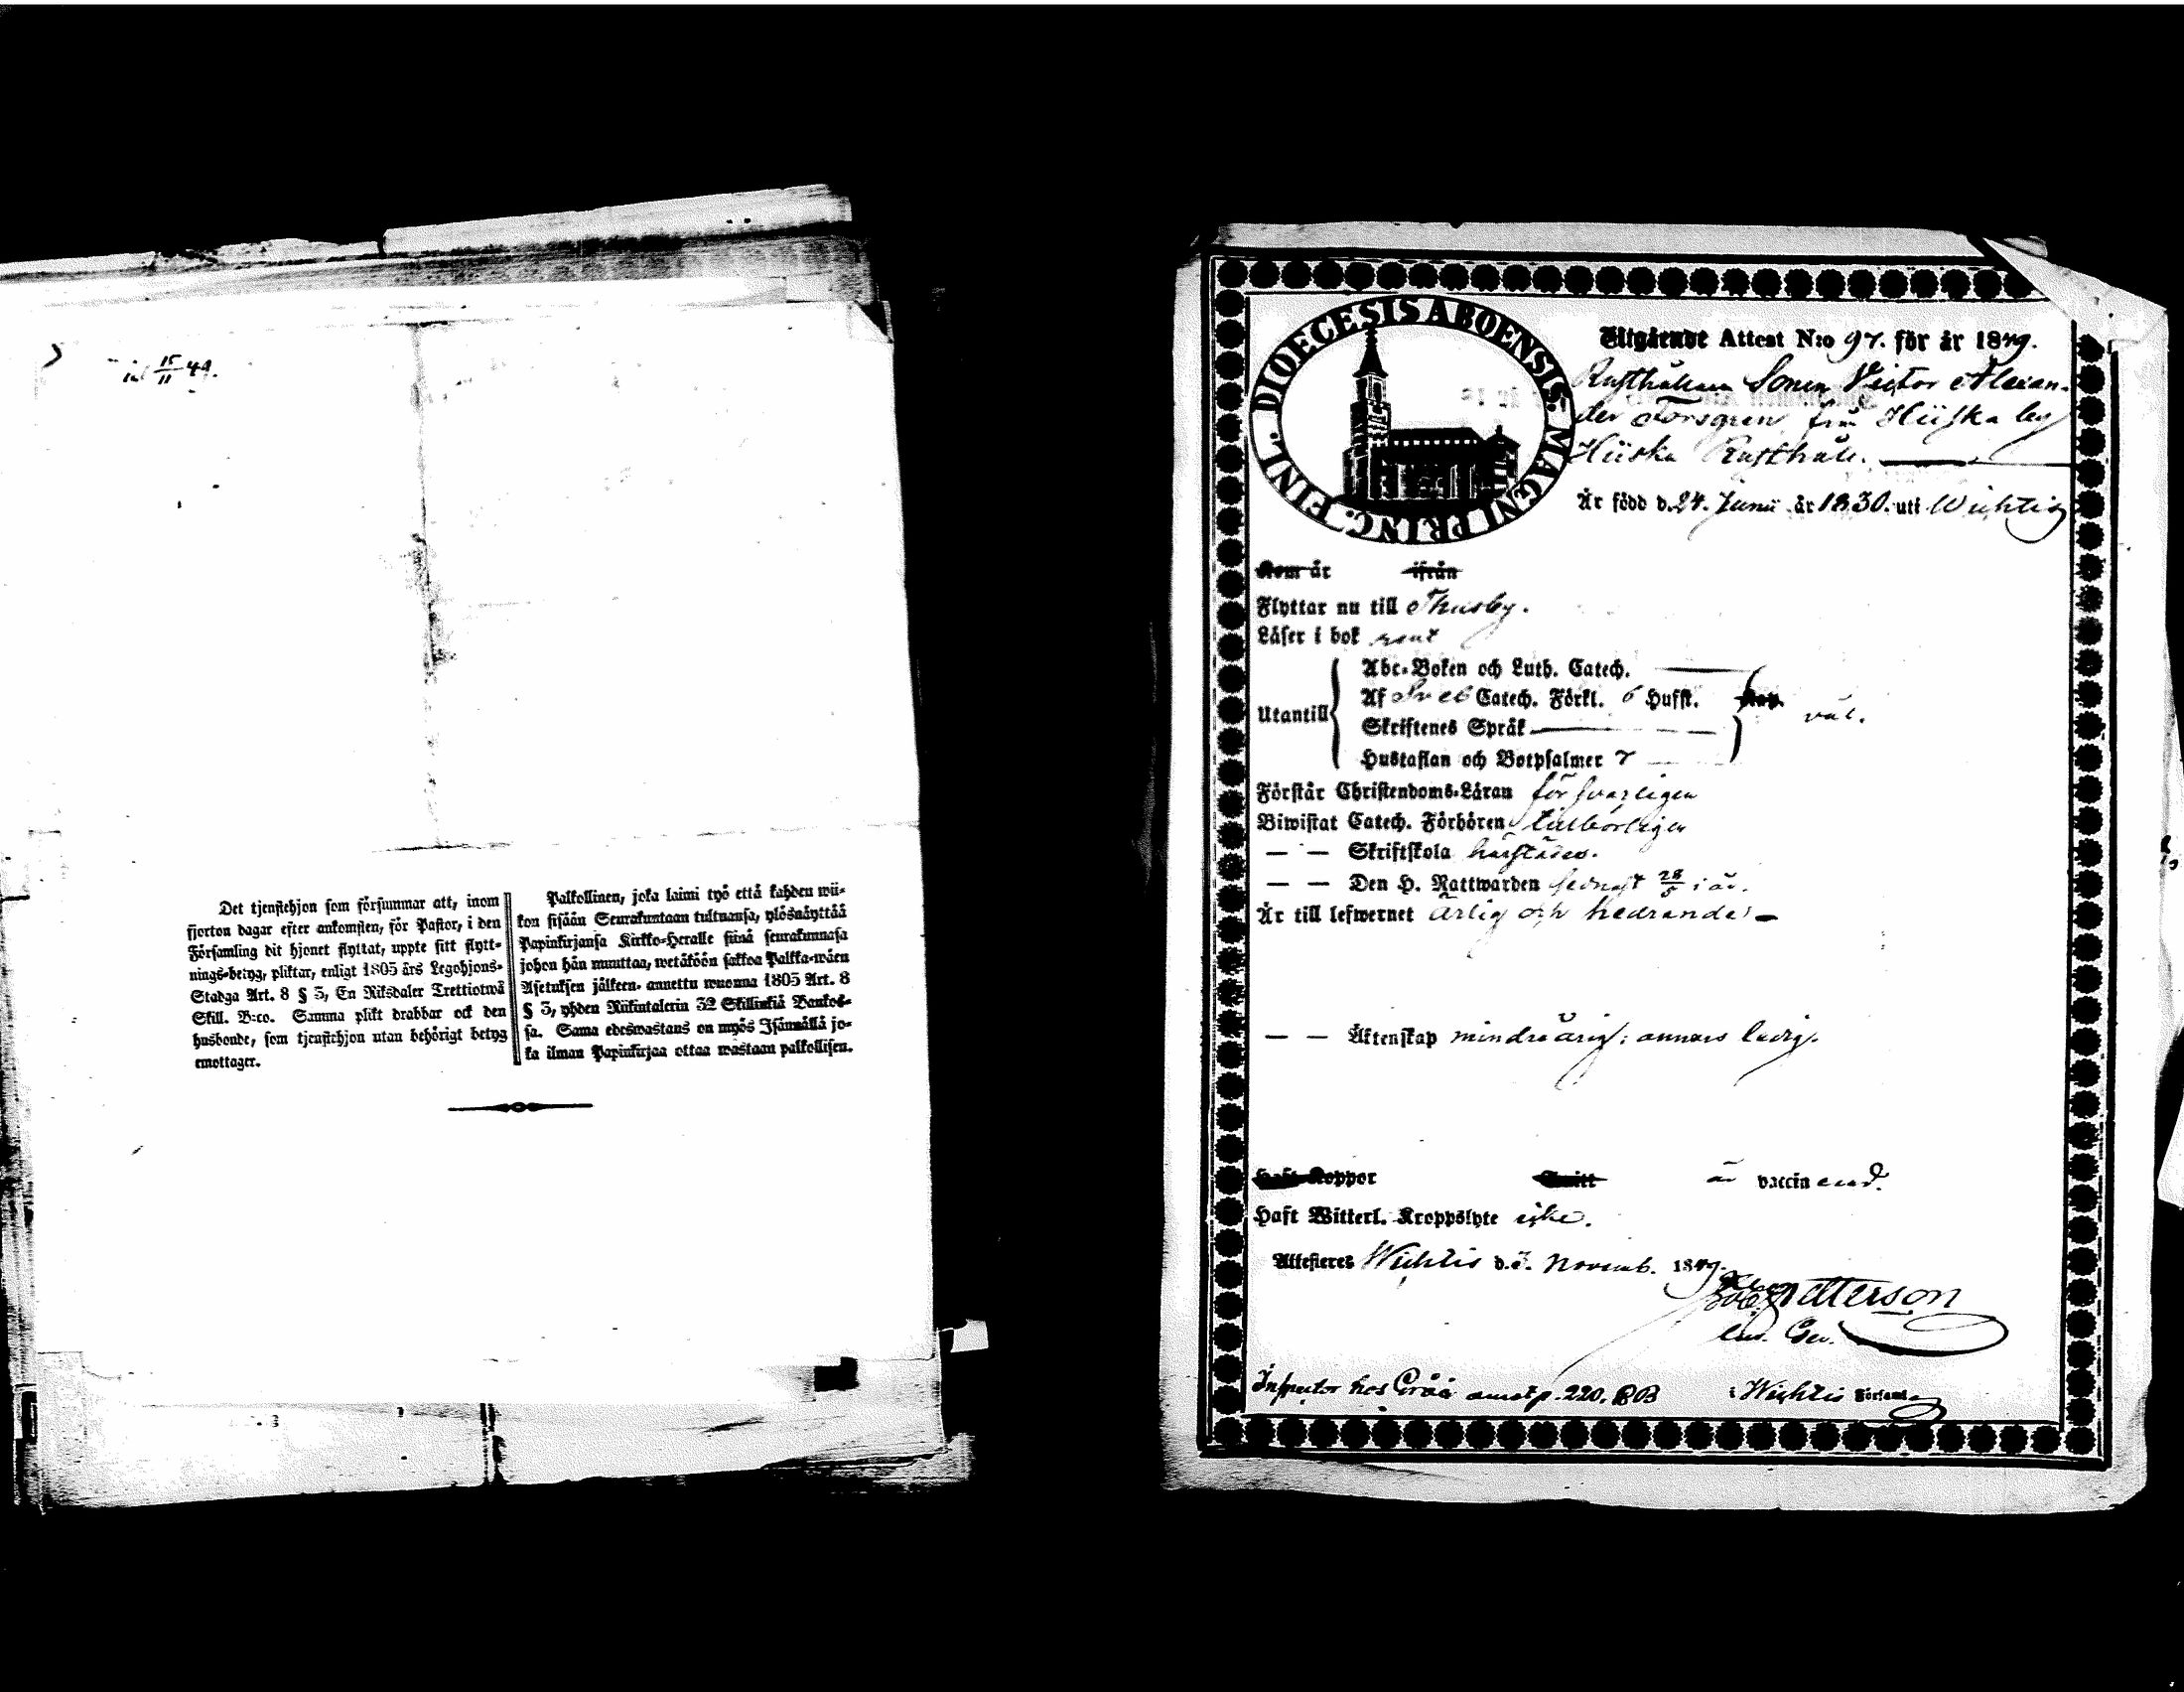 inl 15/11 49.
Det tjenstehjon som försummar att, inom
fjorton dagar efter ankomsten, för Pastor, i den
Församling dit hjonet flyttat, uppte sitt flytt-
nings-betyg, pliktar, enligt 1805 års Legohjons-
Stadga Art. 8 § 5, En Riksdaler Trettiotwå
Skill. B:co. Samma plikt drabbar ock den
husbonde, som tjenstehjon utan behörigt betyg
emottager.
Palkollinen, joka laimi lyö että kahden wii-
kon sisään Seurakuntaan tultuansa, ylösnäyttää
Papinkirjansa Kirkko-Heralle siinä seurakunnasa
johon hän muuttaa, wetäköön sakkoa Palkka-wäen
Asetuksen jälkeen, annettu wuonna 1805 Art. 8
§ 5, yhden Riikintalerin 32 Skillinkiä Bankos-
sa. Sama edeswastaus on myös Isännällä jo-
ka ilman Papinkirjaa ottaa wastaan palkollisen.
DIOECESIS ABOENSIS. MAGNI PRINC. FINL.
Utgående Attest N:o 97. för år 1849.
Rusthållare Sonen Victor Alexan-
der Forsgren från Hiiska by
Hiiska Rusthåll.
Är född d. 24. Junii år 1830. uti Wichtis
Kom år ifrån
Flyttar nu till Thusby.
Läser i bok rent
Utantill
Abc-Boken och Luth. Catech.
Af Sveb Catech. Förkl. 6 Hufst.
väl.
Skriftenes Språk
Hustaflan och Botpsalmer 7
Förstår Christendoms-Läran försvarligen
Biwistat Catech. Förhören tillbörligen
— — Skriftskola härstädes.
— — Den H. Nattwarden sednast 28/5 i år.
Är till lefwernet ärlig och hedrande
— — Äktenskap mindreårig; annars ledig.
Haft Koppor är vaccinerad.
Haft Witterl. Kroppslyte icke.
Attesteres Wichtis d. Novemb. 1849.
Petterson
Inspector hos Gråå p. 220. BB i Wichtis Förfaml.